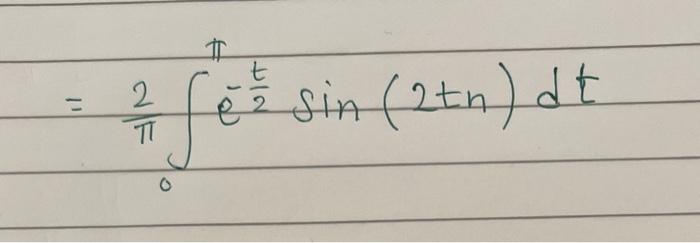 = 2/π ∫₀^π e^(-t/2) sin (2tn) dt